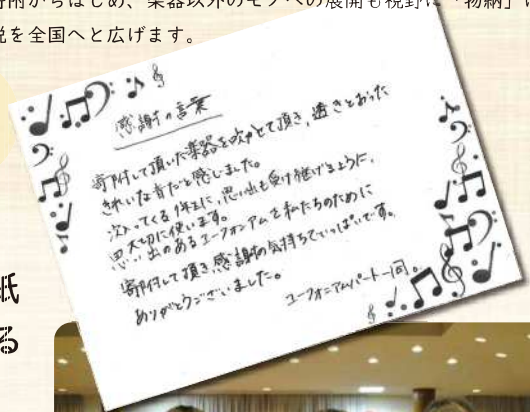 寄附からはじめ、楽器以外のモノへの展開も視野に「物納」に
税を全国へと広げます。
感謝の言葉
寄附して頂いた楽器を吹かせて頂き、透きとおった
きれいな音だと感じました。
次入ってくる1年生に、思い出も受け継げるように、
大切に使います。
思い出のあるユーフォニアムを私たちのために
寄附して頂き感謝の気持ちでいっぱいです。
ありがとうございました。
ユーフォニアムパート一同。
紙
る